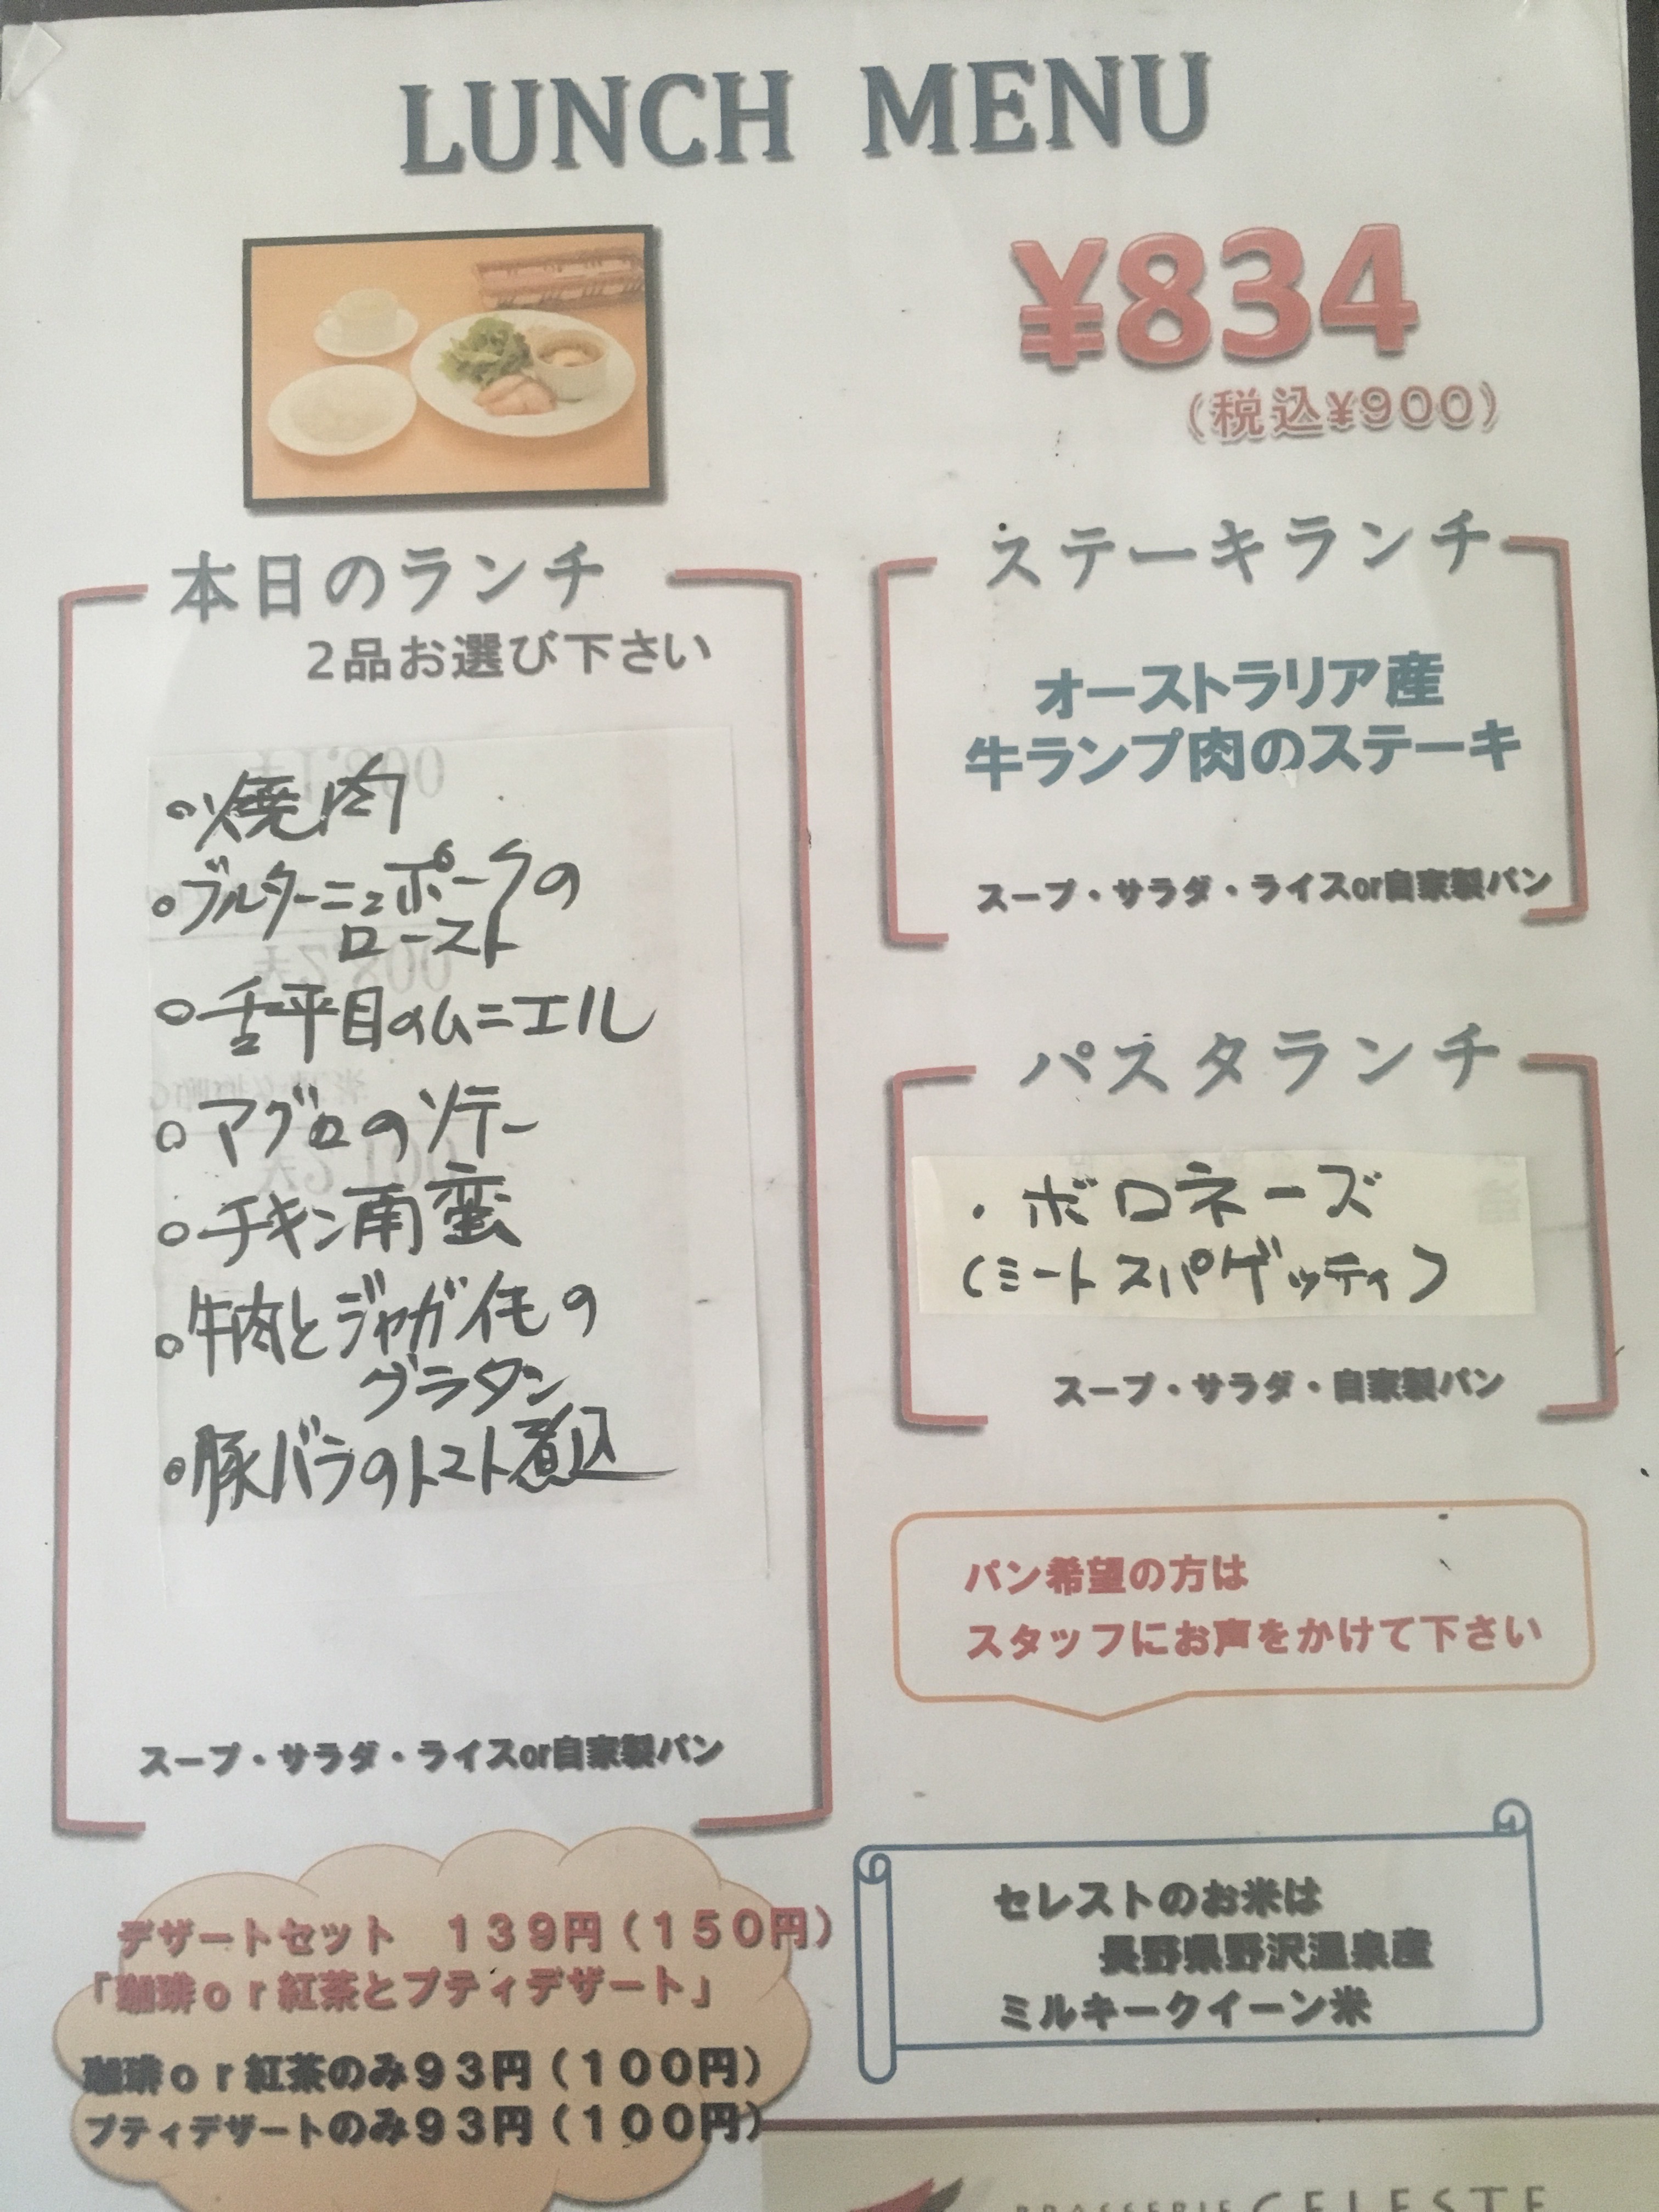 LUNCH MENU
¥834
(税込¥900)
本日のランチ
2品お選び下さい
焼肉
ブルターニュポークの
ロースト
舌平目のムニエル
マグロのソテー
チキン南蛮
牛肉とジャガイモの
グラタン
豚バラのトマト煮込
スープ・サラダ・ライスor自家製パン
ステーキランチ
オーストラリア産
牛ランプ肉のステーキ
スープ・サラダ・ライスor自家製パン
パスタランチ
・ボロネーズ
(ミートスパゲッティ)
スープ・サラダ・自家製パン
パン希望の方は
スタッフにお声をかけて下さい
デザートセット 139円(150円)
「珈琲or紅茶とプティデザート」
珈琲or紅茶のみ93円(100円)
プティデザートのみ93円(100円)
セレストのお米は
長野県野沢温泉産
ミルキークイーン米
BRASSERIE CELESTE